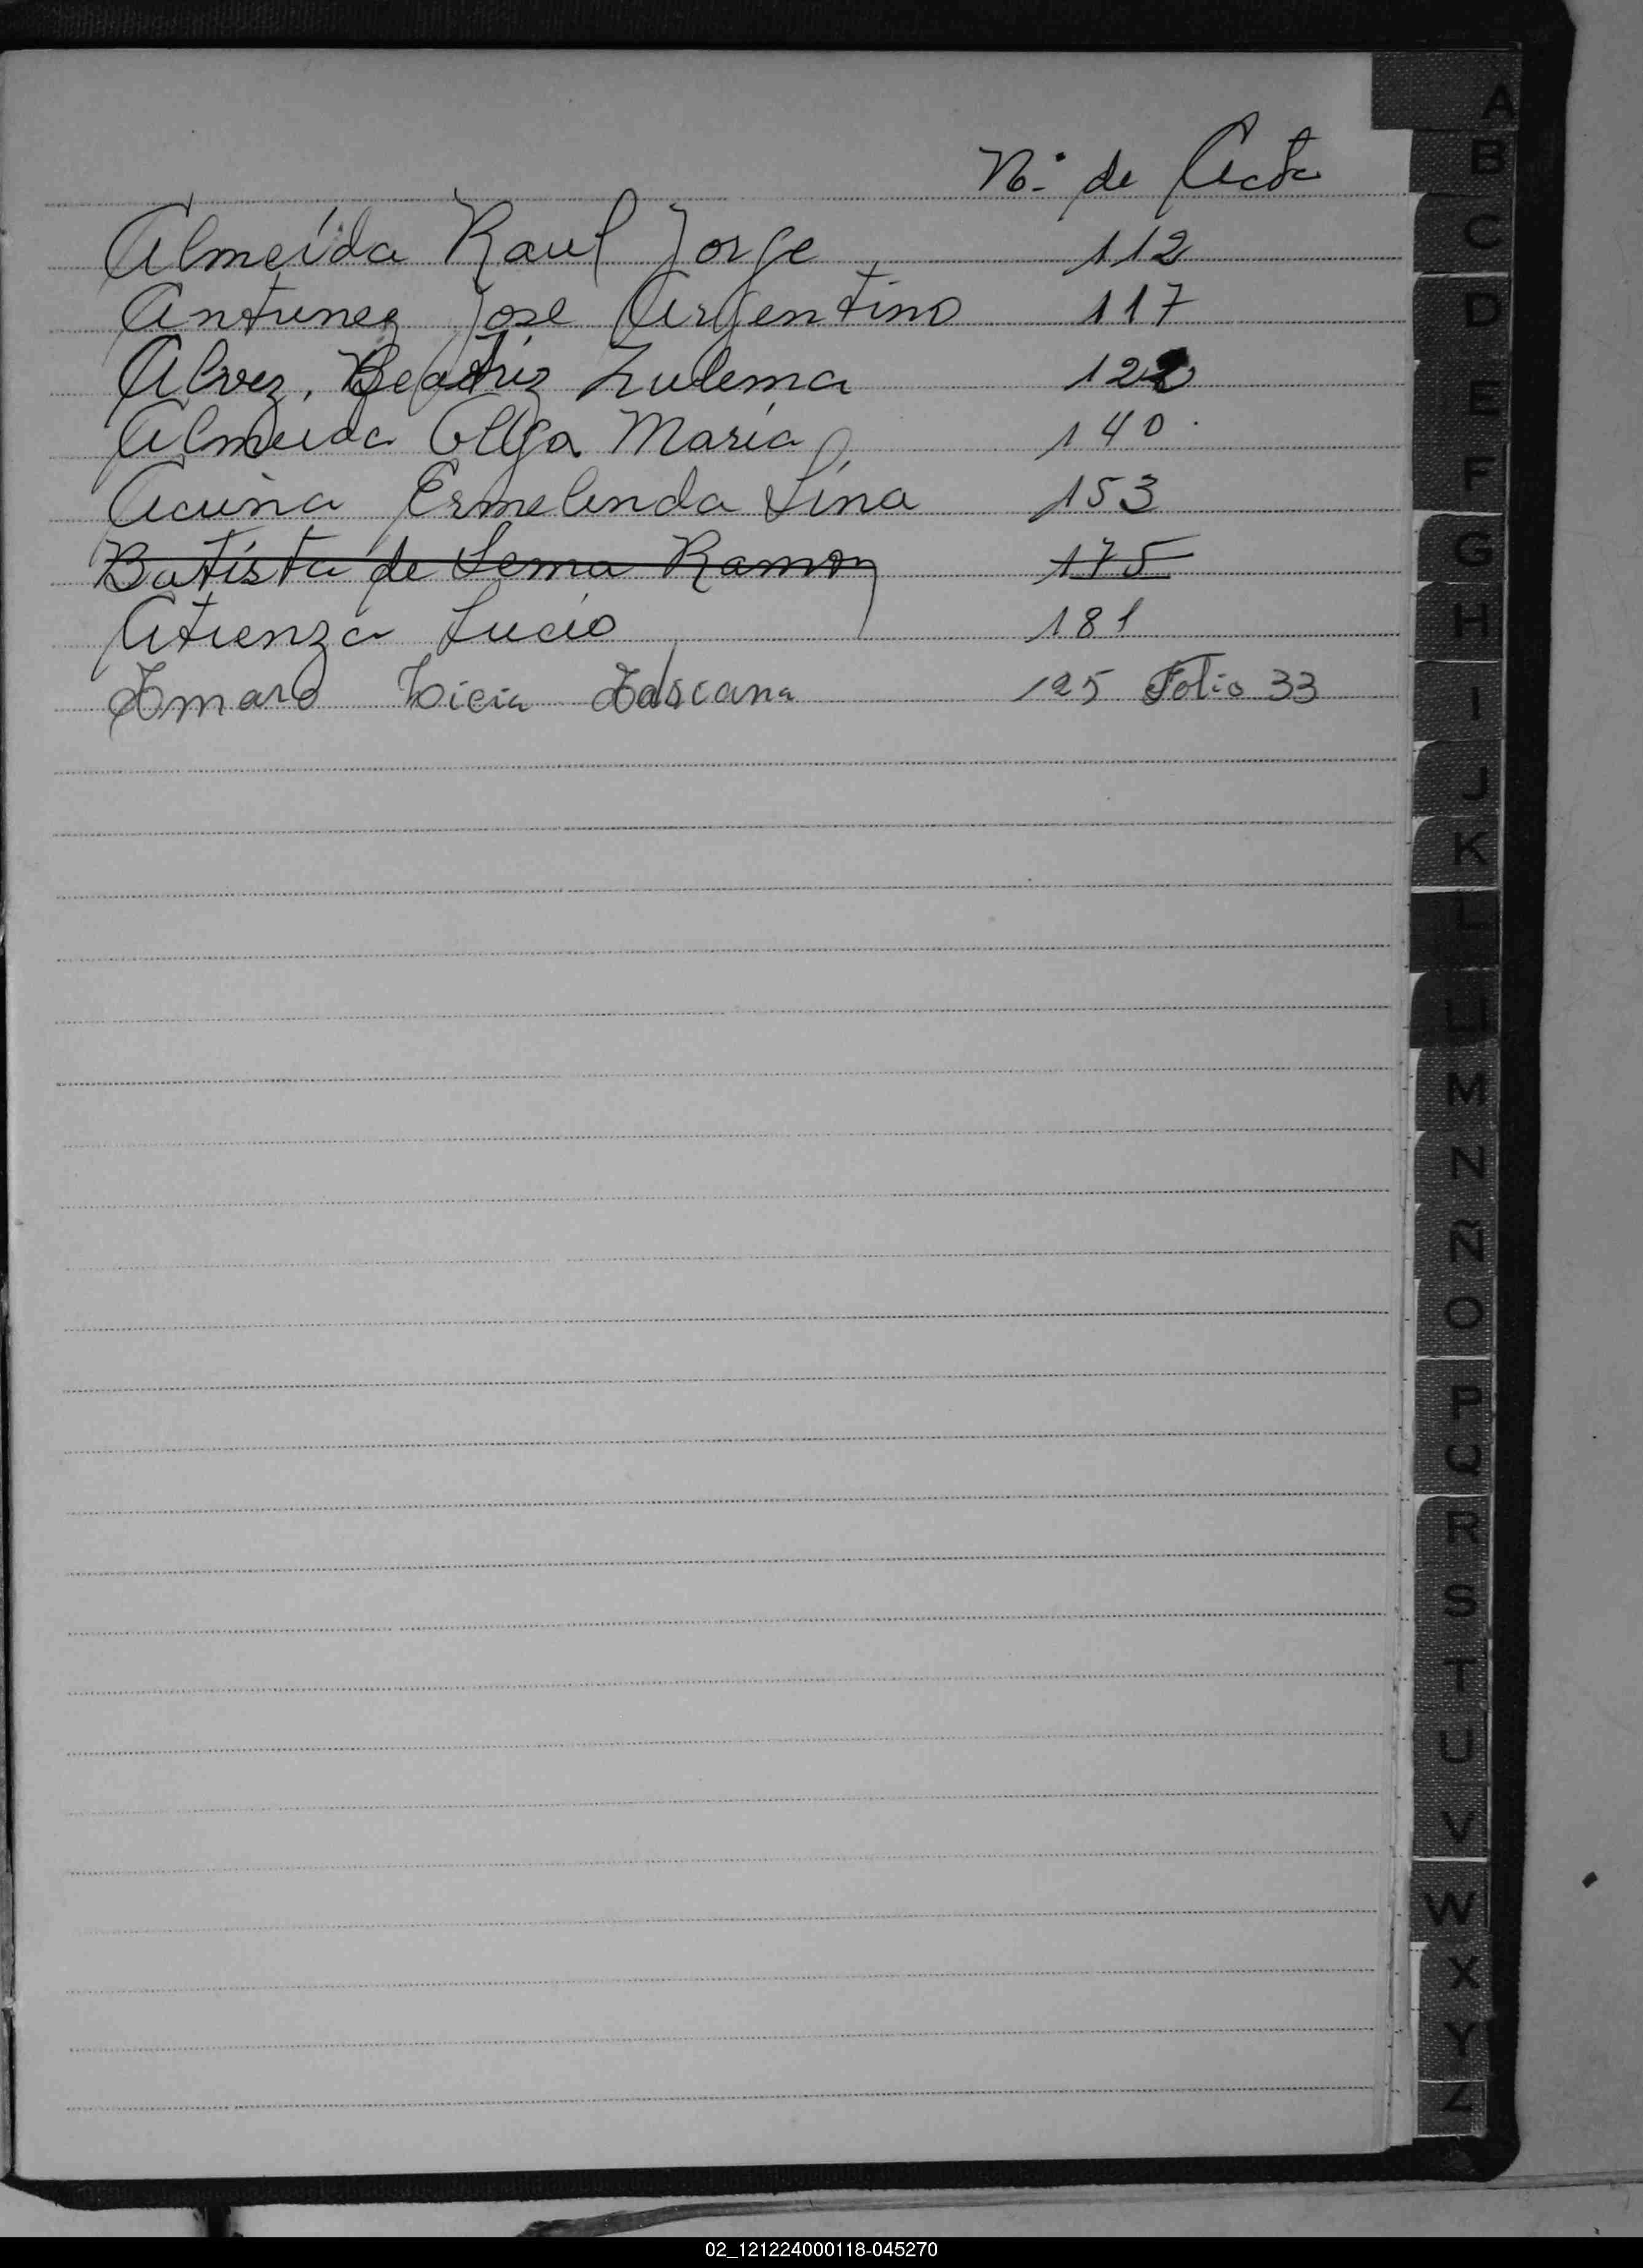 Nº de Acta
Almeida Raul Jorge 112
Antunez Jose Argentino 117
Alvez, Beatriz Zulema 122
Almeida Olga Maria 140
Acuña Ermelinda Lina 153
Batista de Lema Ramon 175
Atienza Lucio 181
Amaro Licia 195 Folio 33
A
B
C
D
E
F
G
H
I
J
K
L
Ll
M
N
Ñ
O
P
Q
R
S
T
U
V
W
X
Y
Z
02_121224000118-045270